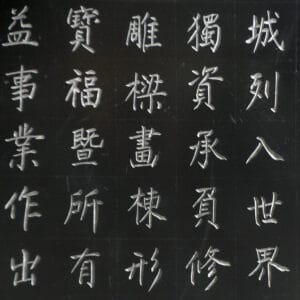 城列入世界
獨資承負修
雕樑畫棟形
寶福暨所有
益事業作出